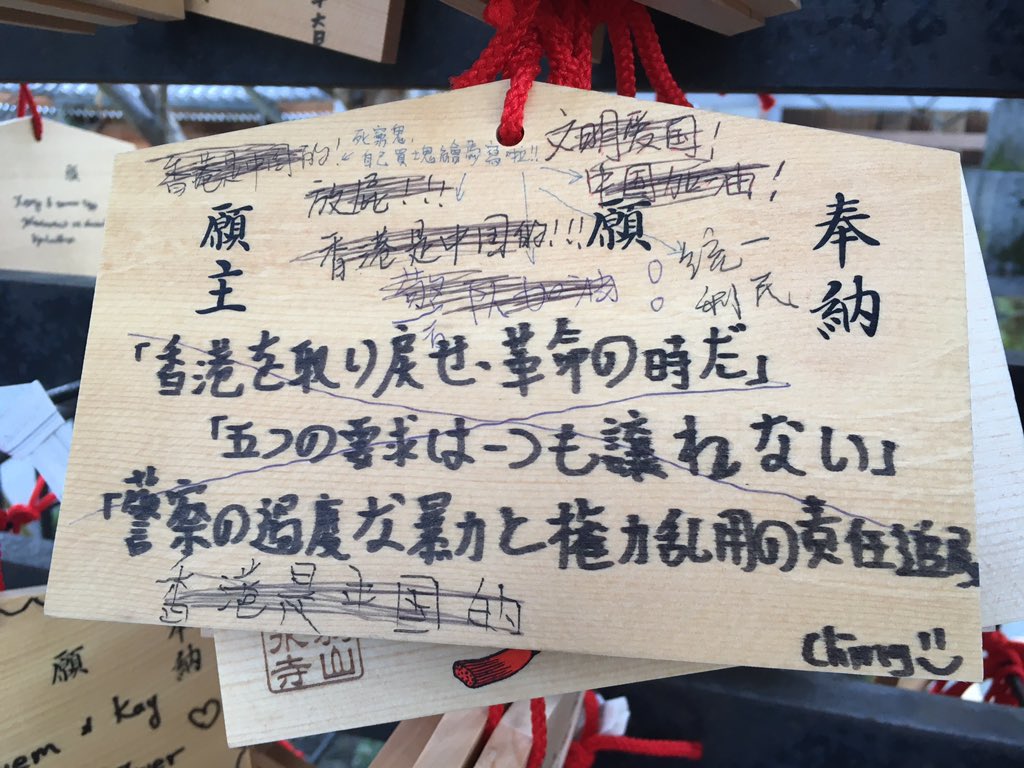 香港是中国的!
死窮鬼,
自己買塊繪馬寫啦!!
文明爱国!
放屁!!!
中国加油!
香港是中国的!!!
统一
利民
警队加油
奉納
願
願主
「香港を取り戻せ、革命の時だ」
「五つの要求は一つも譲れない」
「警察の過度な暴力と権力乱用の責任追究
香港是中国的
Ching
願
奉納
Kay